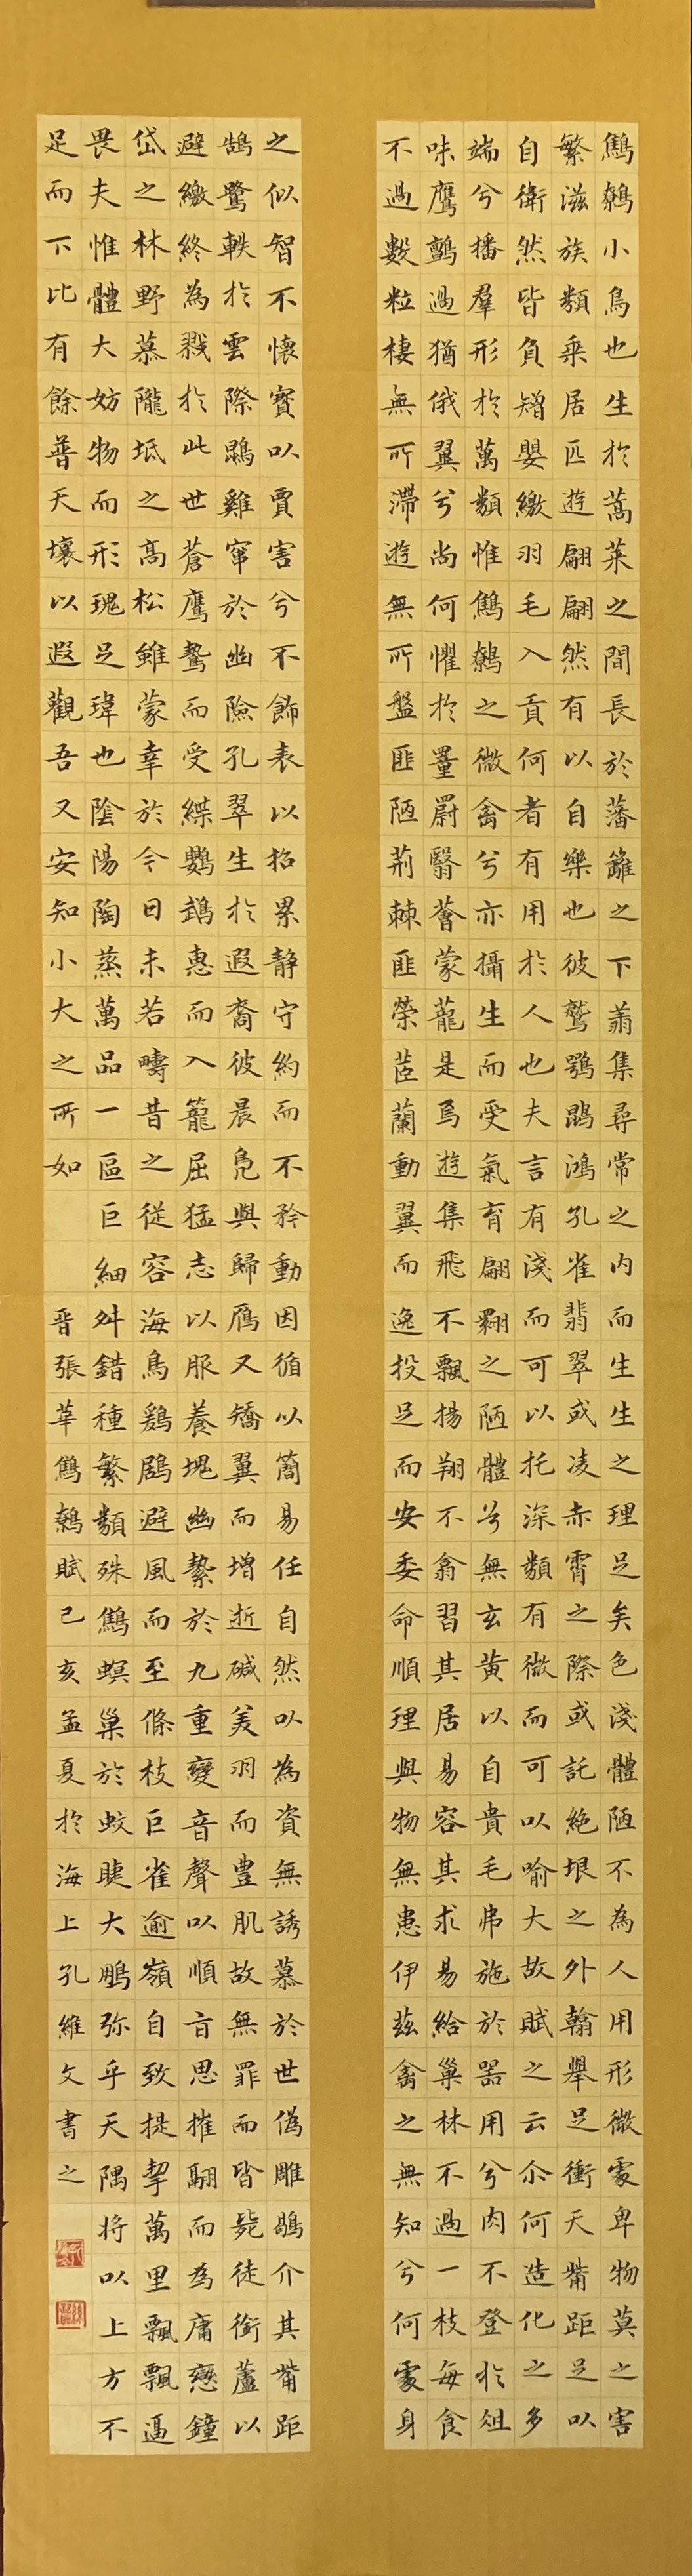 鷦鷯小鳥也生於蒿萊之間長於藩籬之下翔集尋常之內而生生之理足矣色淺體陋不為人用形微處卑物莫之害
繁滋族類乘居匹遊翩翩然有以自樂也彼鷲鶚鵾鴻孔雀翡翠或凌赤霄之際或託絕垠之外翰舉足衝天觜距足以
自衛然皆負矰嬰繳羽毛入貢何者有用於人也夫言有淺而可以托深類有微而可以喻大故賦之云尒何造化之多
端兮播羣形於萬類惟鷦鷯之微禽兮亦攝生而受氣育翩翾之陋體兮無玄黃以自貴毛弗施於器用兮肉不登於俎
味鷹鸇過猶俄翼兮尚何懼於罿罻翳薈蒙蘢是焉遊集飛不飄揚翔不翕習其居易容其求易給巢林不過一枝每食
不過數粒棲無所滯遊無所盤匪陋荊棘匪榮茝蘭動翼而逸投足而安委命順理與物無患伊茲禽之無知兮何處身
之似智不懷寶以賈害兮不飾表以招累静守約而不矜動因循以簡易任自然以為資無誘慕於世偽雕鶡介其觜距
鵠鷺軼於雲際鵾雞窜於幽險孔翠生於遐裔彼晨鳧與歸鴈又矯翼而增逝碱美羽而豊肌故無罪而皆斃徒銜蘆以
避繳終為戮於此世蒼鷹鷙而受緤鸚鵡惠而入籠屈猛志以服養塊幽縶於九重變音聲以順旨思摧翮而為庸戀鐘
岱之林野慕隴坻之高松雖蒙幸於今日未若疇昔之從容海鳥鶢鶋避風而至條枝巨雀逾嶺自致提挈萬里飄飄逼
畏夫惟體大妨物而形瑰足瑋也陰陽陶蒸萬品一區巨細舛錯種繁類殊鷦螟巢於蚊睫大鵬弥乎天隅将以上方不
足而下比有餘普天壤以遐觀吾又安知小大之所如 晋張華鷦鷯賦己亥孟夏於海上孔維文書之